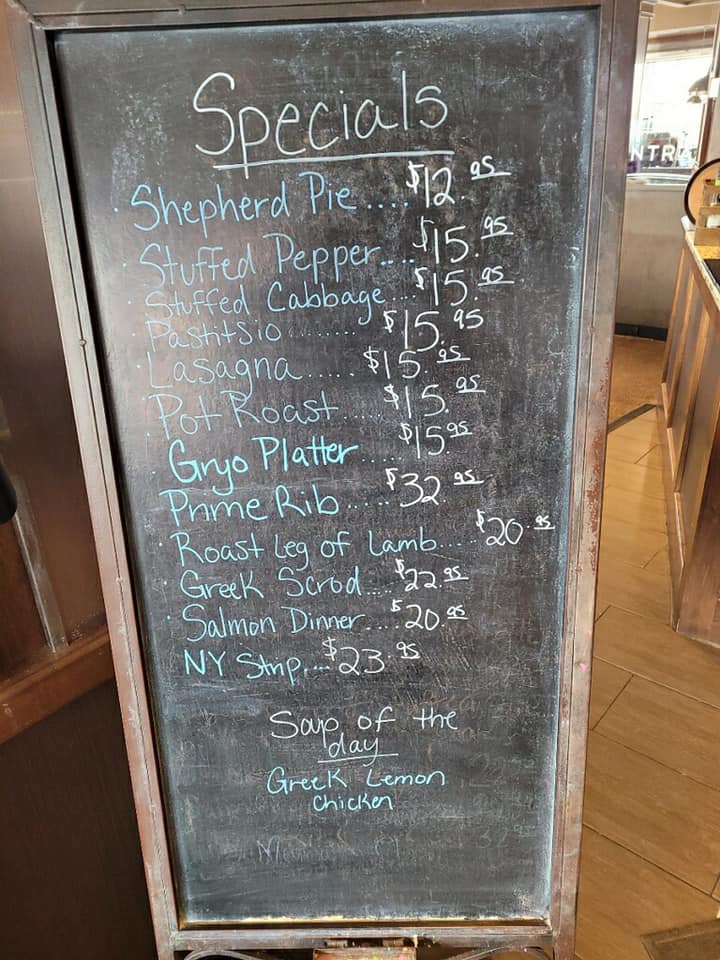 Specials
Shepherd Pie.... $12.95
Stuffed Pepper.... $15.95
Stuffed Cabbage... $15.95
Pastitsio........ $15.95
Lasagna..... $15.95
Pot Roast..... $15.95
Gryo Platter.... $15.95
Prime Rib..... $32.95
Roast Leg of Lamb..... $20.95
Greek Scrod.... $22.95
Salmon Dinner.... $20.95
NY Strip.... $23.95
Soup of the
day
Greek Lemon
Chicken